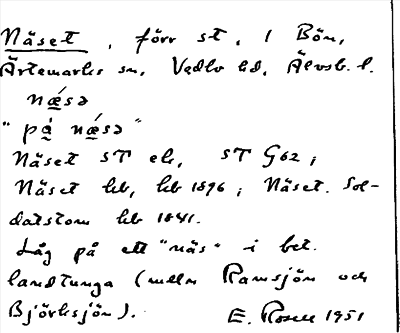 Näset, förr st, i Bön,
Ärtemarks sn, Vedbo hd, Älvsb. l.
næ̀sə
"på næ̀sə"
Näset ST ek, ST G62;
Näset kb, kb 1896; Näset. Sol-
datstom kb 1841.
Låg på ett "näs" i bet.
landtunga (mellan Ramsjön och
Björksjön).
E. Rosell 1951